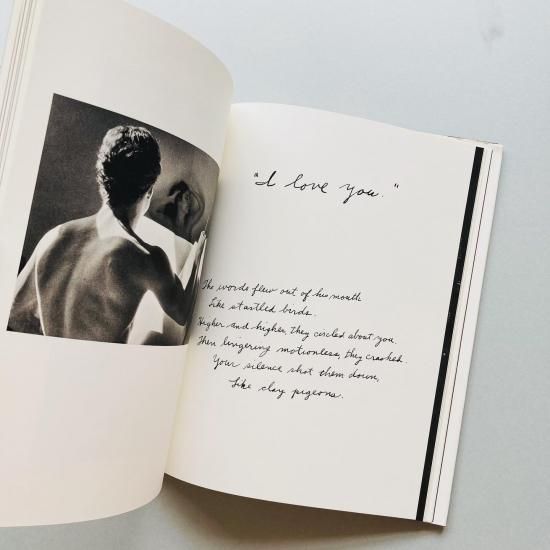 "I love you."
The words flew out of his mouth
Like startled birds.
Higher and higher, they circled about you,
Then lingering motionless, they crashed.
Your silence shot them down,
Like clay pigeons.